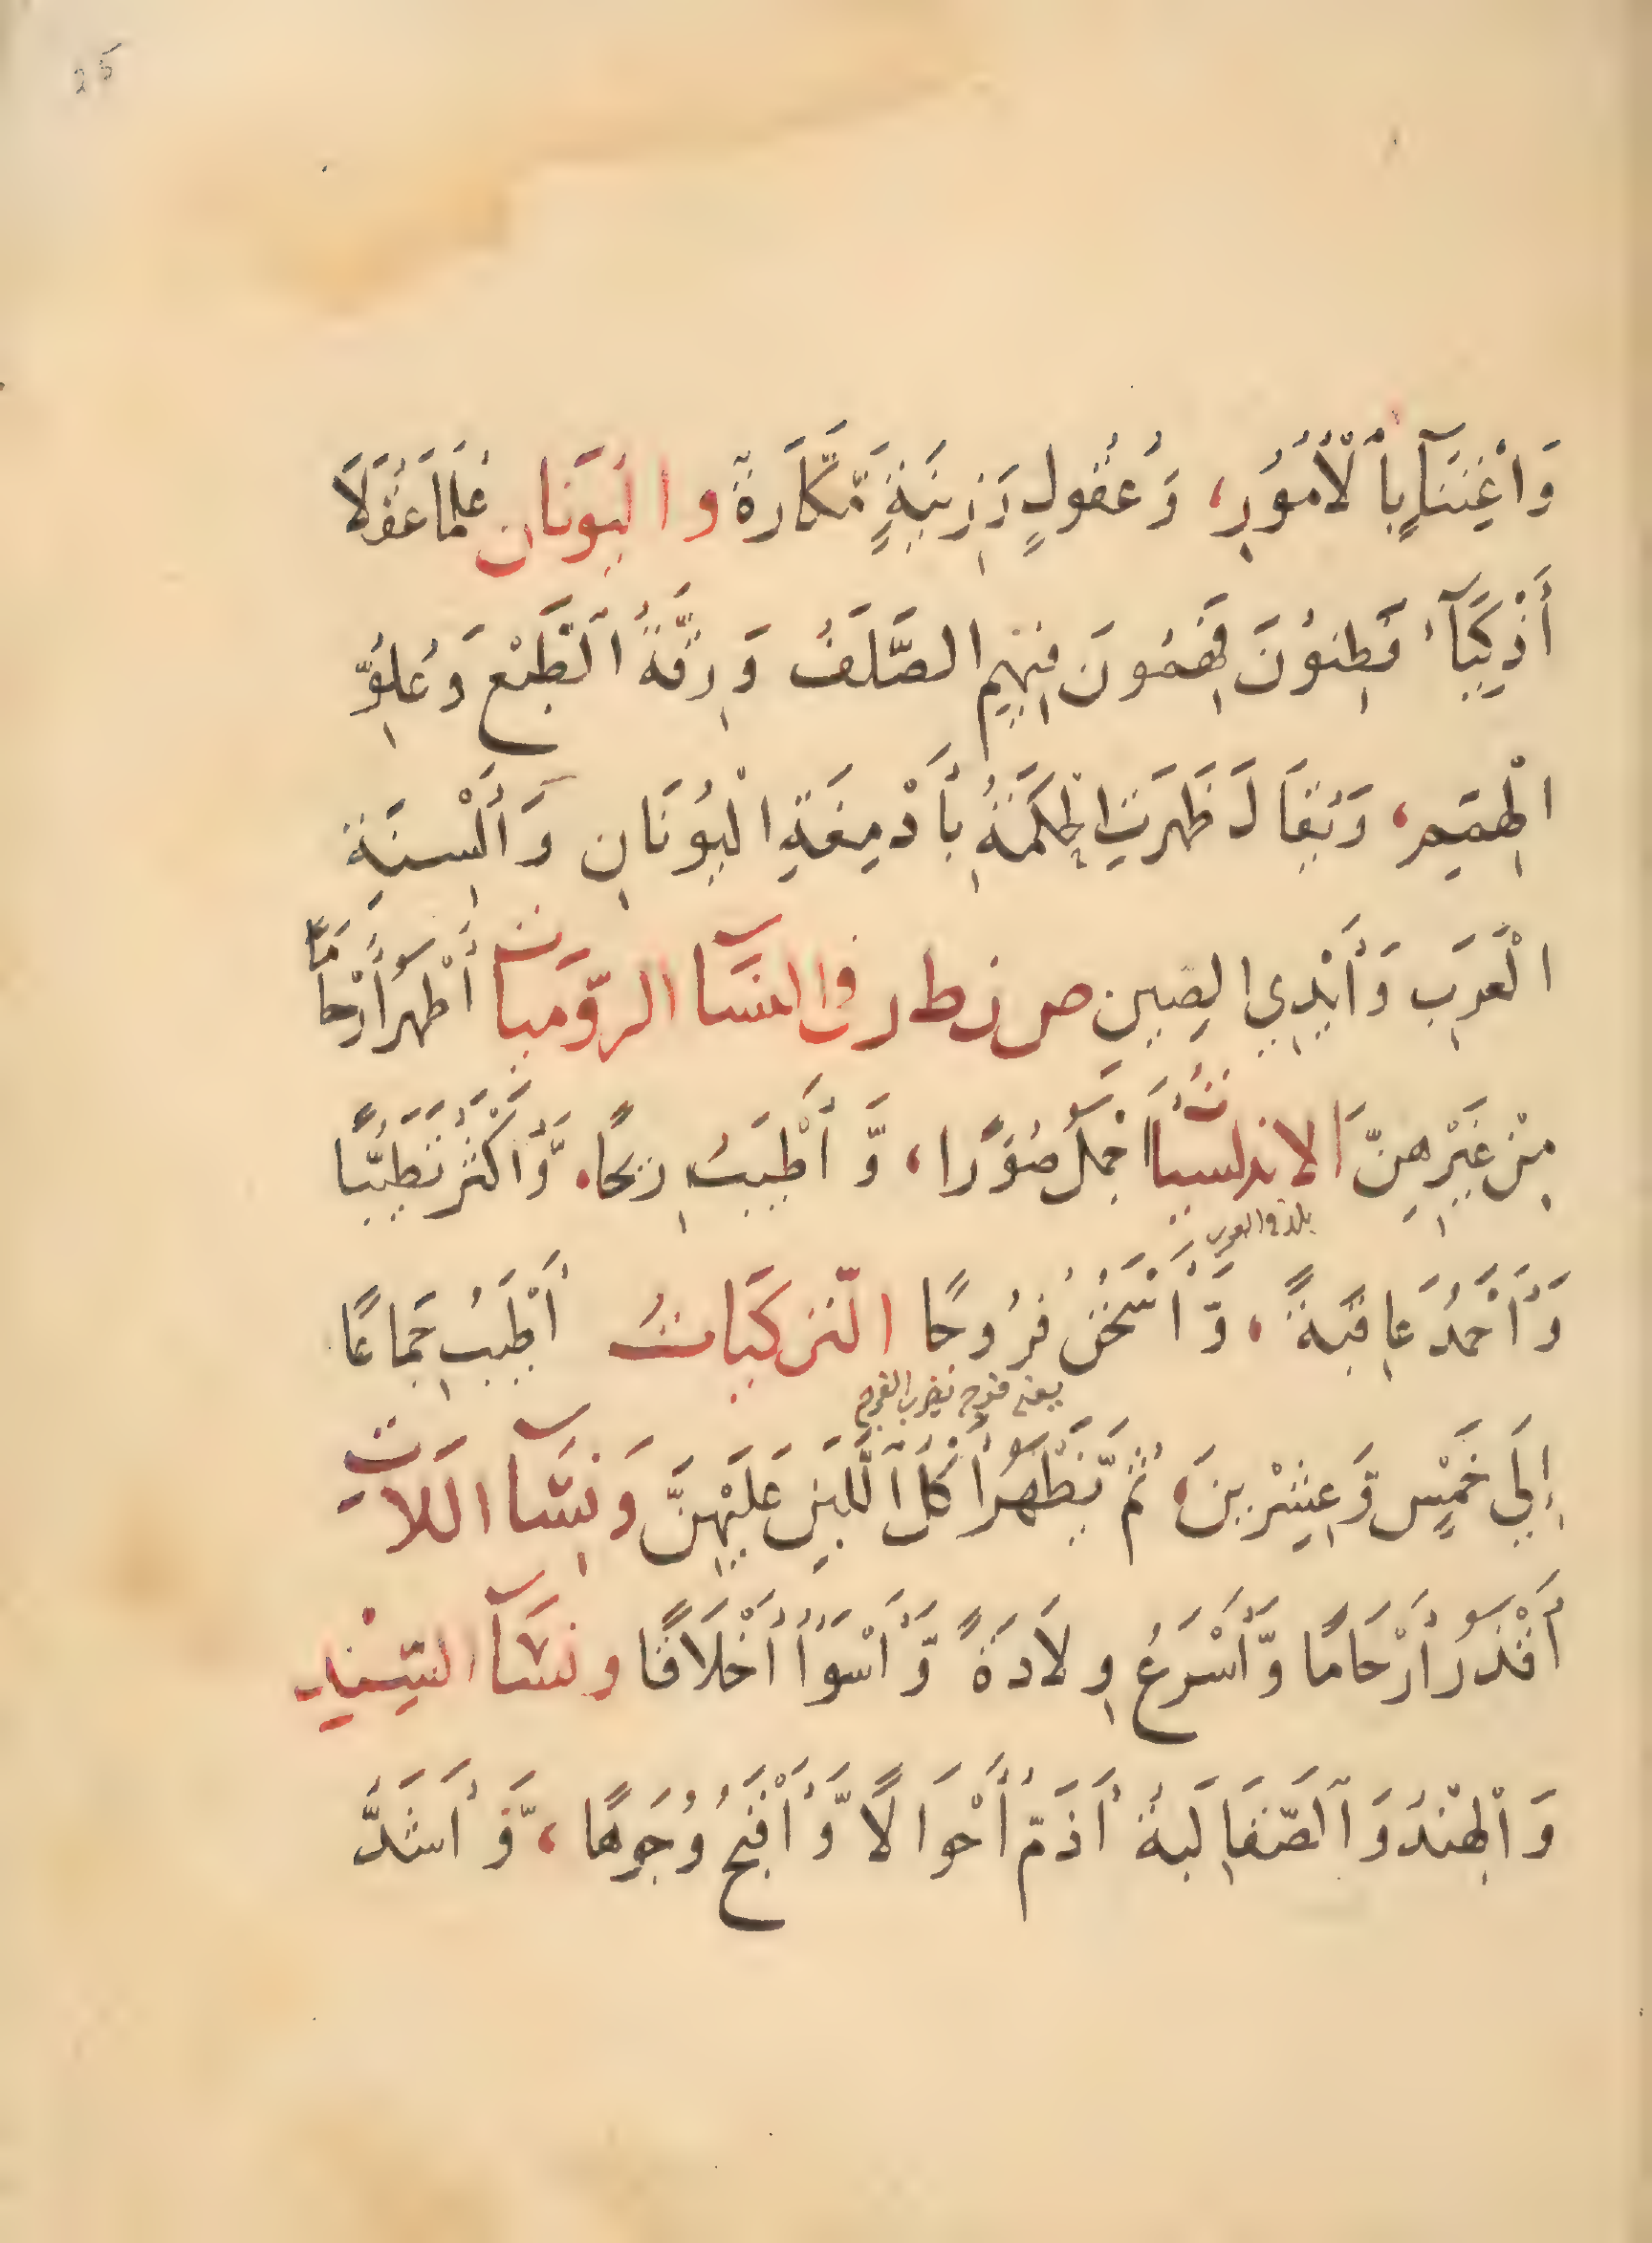 25
وَاعْتِنَآءٍ بِالْأُمُورِ، وَعُقُولٍ رَزِينَةٍ مَّكَّارَةٌ والْيُونَان عُلَمَا عُقَلَا
أَذْكِيَآءُ فَطِنُونَ فَهِمُونَ فِيْهِم الصَّلَفُ وَرِقَّةُ الطَّبْعِ وَعُلُوُّ
الْهِمَمِ، وَيُقَالُ ظَهَرَتِ الْحِكْمَةُ بِأَدْمِغَةِ الْيُونَانِ وَأَلْسِنَةِ
الْعَرَبِ وَأَيْدِي الصِّينِ والنِّسَآ الرُّومِيَّاتُ أَطْهَرُ أَرْحَامًا
مِنْ غَيْرِهِنَّ الاندلسيَّاتُ أَجْمَلُ صُوَرًا، وَّأَطْيَبُ رِيحًا. وَّأَكْثَرُ تَطَيُّبًا
بلدة فى الغرب
وَأَحْمَدُ عَاقِبَةً، وَّأَسْخَنُ فُرُوجًا التُّركِيَّاتُ أَطْيَبُ جِمَاعًا
إِلَى خَمْسٍ وَّعِشْرِينَ، ثُمَّ يَظْهَرُ أَكْلُ اللَّبَنِ عَلَيْهِنَّ وَنِسَآ اللَّاتِ
أَقْذَرُ أَرْحَامًا وَّأَسْرَعُ وِلَادَةً وَّأَسْوَأُ أَخْلَاقًا ونِسَآ السِّنْدِ
وَالْهِنْدُ وَالصَّقَالِبَةُ أَذَمُّ أَحْوَالًا وَّأَقْبَحُ وُجُوهًا، وَّأَشَدُّ